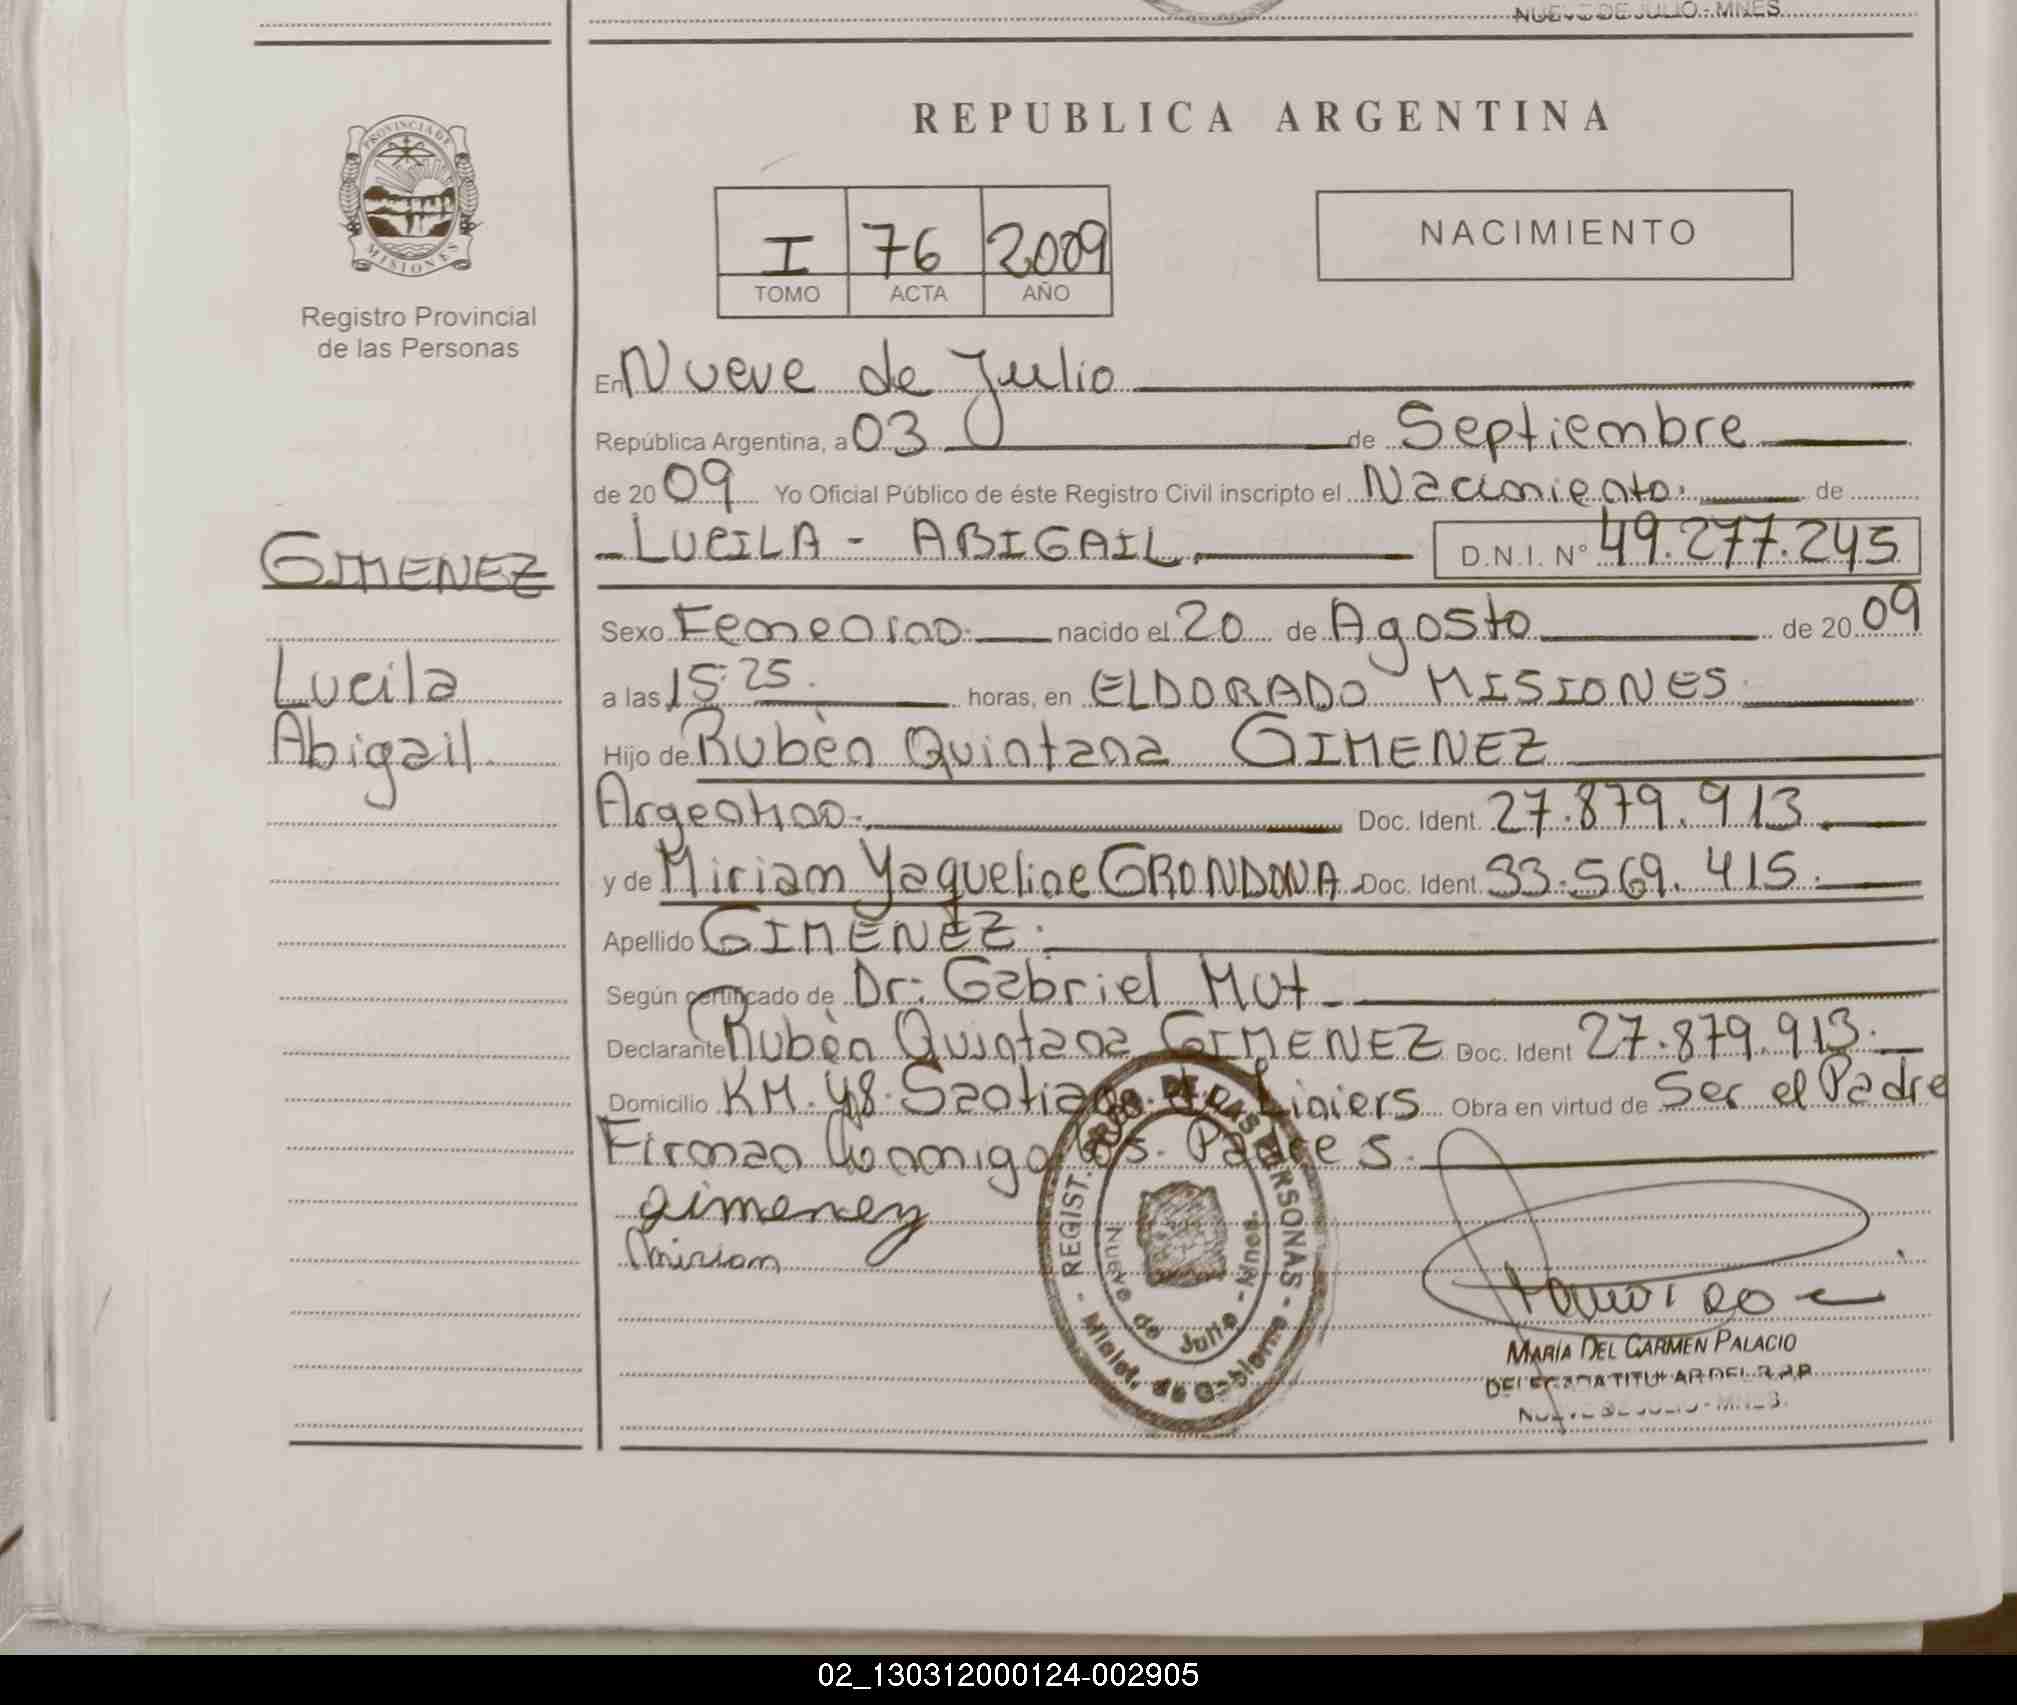 NUEVE DE JULIO - MNES
PROVINCIA DE
MISIONES
Registro Provincial
de las Personas
GIMENEZ
Lucila
Abigail
REPUBLICA ARGENTINA
I 76 2009
TOMO ACTA AÑO
NACIMIENTO
En Nueve de Julio
República Argentina, a 03 de Septiembre
de 2009 Yo Oficial Público de éste Registro Civil inscripto el Nacimiento. de
LUCILA - ABIGAIL. D.N.I. N° 49.277.245
Sexo Femenino. nacido el 20 de Agosto de 2009
a las 15:25. horas, en ELDORADO MISIONES.
Hijo de Rubèn Quintana GIMENEZ
Argentino. Doc. Ident. 27.879.913.
y de Miriam Yaqueline GRONDONA Doc. Ident. 33.569.415.
Apellido GIMENEZ.
Según certificado de Dr: Gabriel Mut.
Declarante Rubèn Quintana GIMENEZ Doc. Ident 27.879.913.
Domicilio KM. 48. Santiago de Liniers Obra en virtud de Ser el Padre
Firman Conmigo los Padres.
gimenez
Miriam
REGIST. PROV. DE LAS PERSONAS - Minist. de Gobierno -
Nueve de Julio - Mnes.
MARÍA DEL CARMEN PALACIO
DELEGADA TITULAR DEL R.P.P.
NUEVE DE JULIO - MNES.
02_130312000124-002905